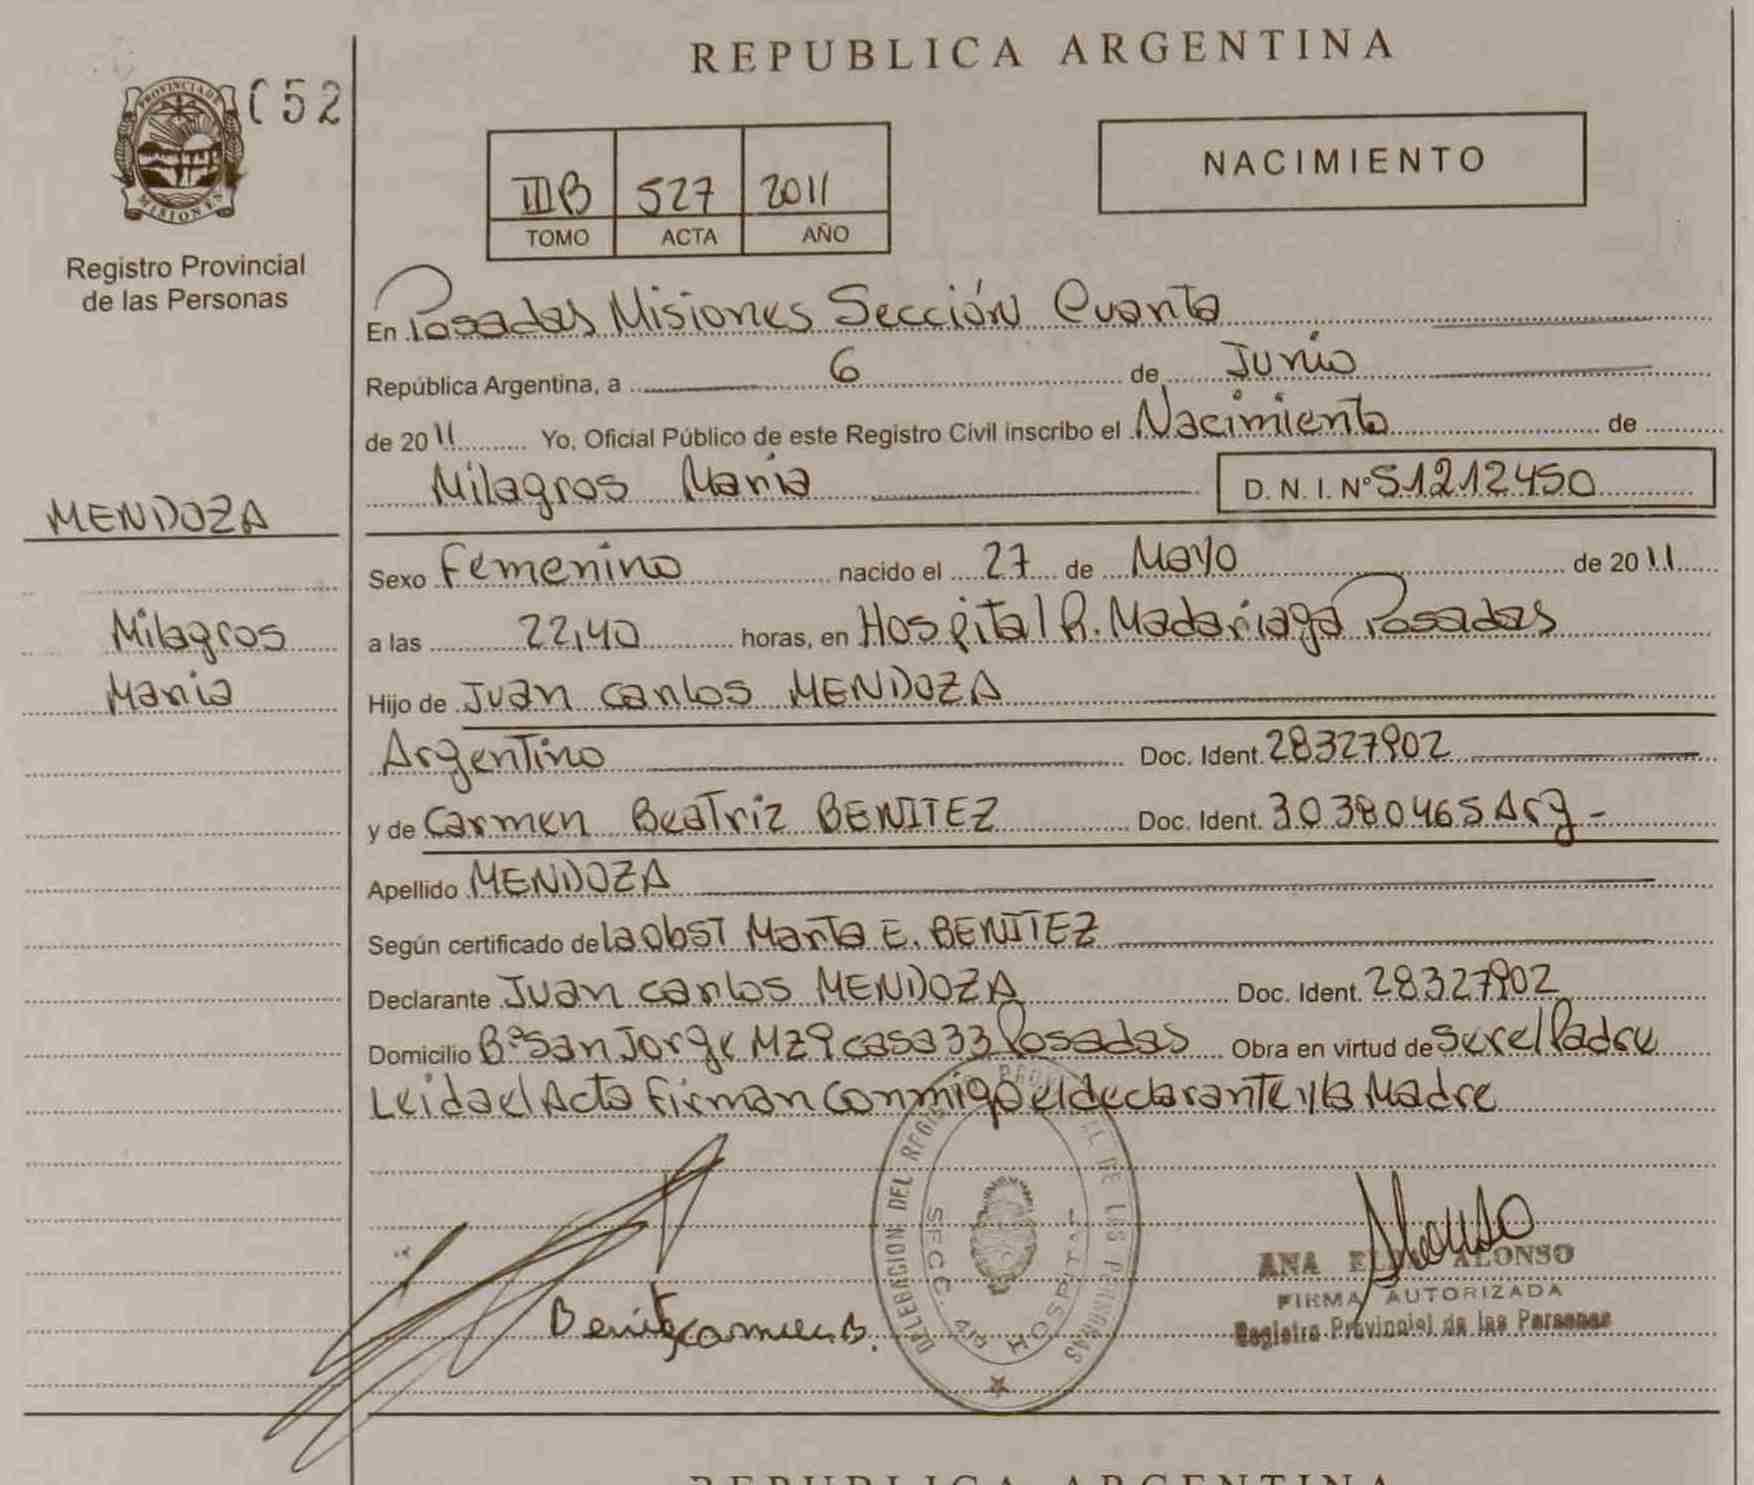 REPUBLICA ARGENTINA
PROVINCIA DE
MISIONES
052
Registro Provincial
de las Personas
IIIB 527 2011
TOMO ACTA AÑO
NACIMIENTO
En Posadas Misiones Sección Cuarta
República Argentina, a 6 de Junio
de 2011 Yo, Oficial Público de este Registro Civil inscribo el Nacimiento de
Milagros Maria D. N. I. Nº 51212450
MENDOZA
Milagros
Maria
Sexo Femenino nacido el 27 de Mayo de 2011
a las 22,40 horas, en Hospital R. Madariaga Posadas
Hijo de Juan Carlos MENDOZA
Argentino Doc. Ident. 28327902
y de Carmen Beatriz BENITEZ Doc. Ident. 30380465 Arg -
Apellido MENDOZA
Según certificado de la Obst Marta E. BENITEZ
Declarante Juan Carlos MENDOZA Doc. Ident. 28327902
Domicilio Bº San Jorge Mz 9 casa 33 Posadas Obra en virtud de ser el Padre
Leida el Acta firman conmigo el declarante y la Madre
DELEGACION DEL REGISTRO PROVINCIAL DE LAS PERSONAS
HOSPITAL
Benitez Carmen B.
Alonso
ANA ALONSO
FIRMA AUTORIZADA
Registro Provincial de las Personas
REPUBLICA ARGENTINA